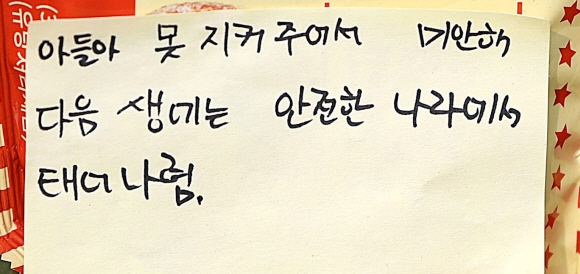 아들아 못 지커 주에서 미안해
다음 생에는 안전한 나라에서
태어나렴.